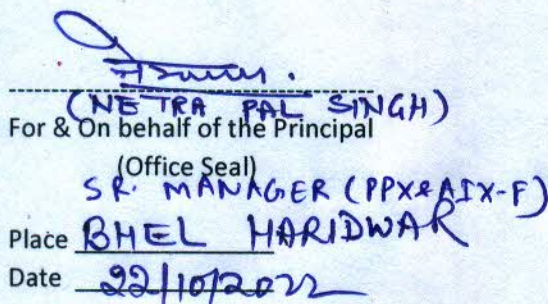 (NETRA PAL SINGH)
For & On behalf of the Principal
(Office Seal)
SR. MANAGER (PPX&AIX-F)
Place BHEL HARIDWAR
Date 22/10/2022